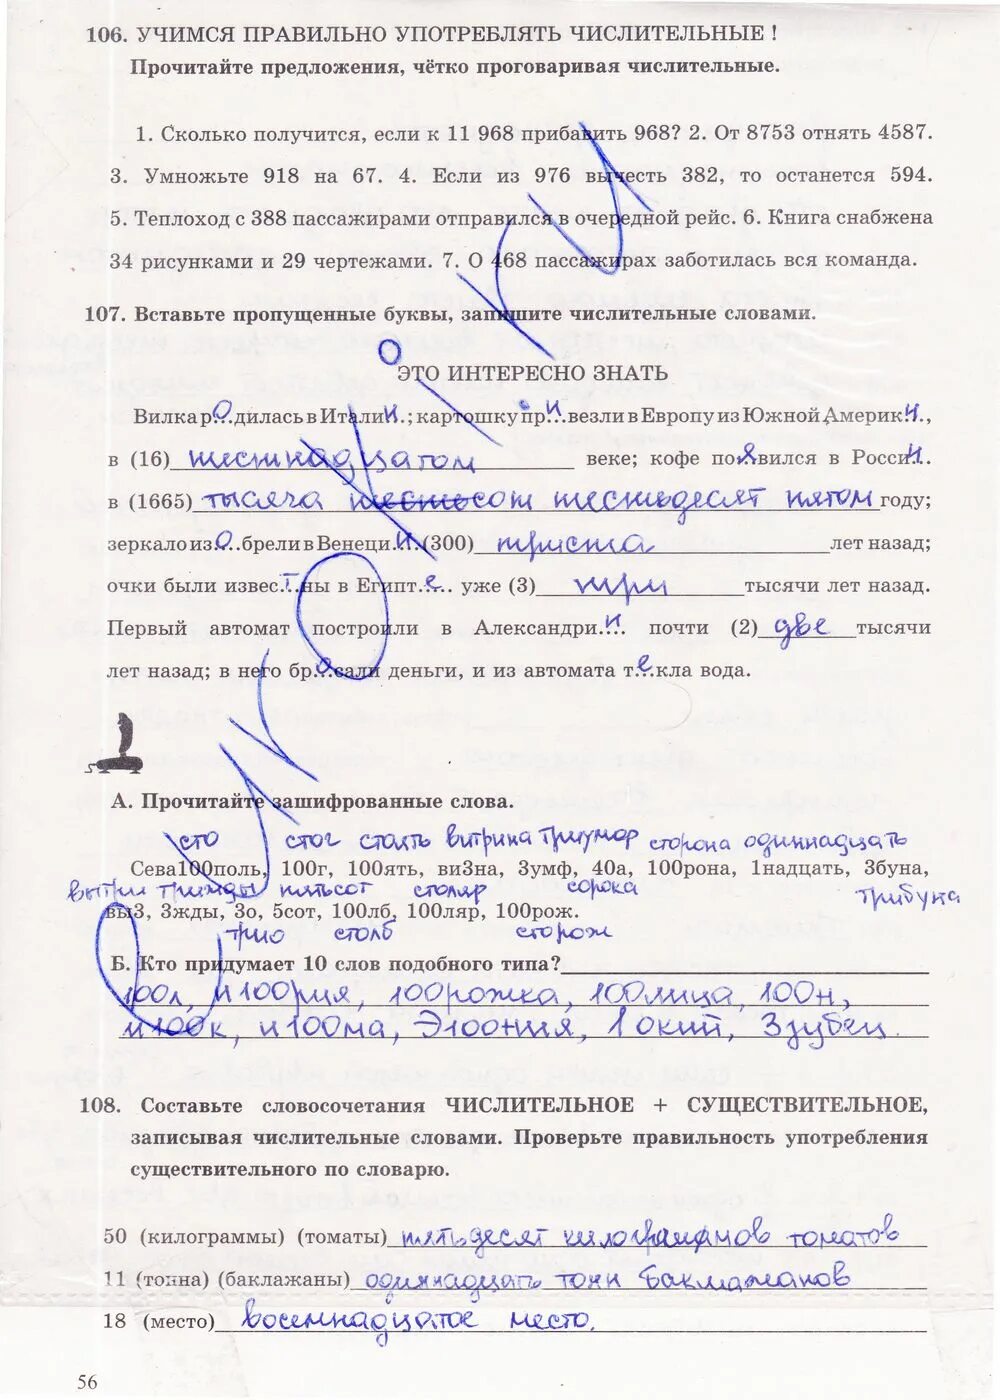 106. УЧИМСЯ ПРАВИЛЬНО УПОТРЕБЛЯТЬ ЧИСЛИТЕЛЬНЫЕ !
Прочитайте предложения, чётко проговаривая числительные.
1. Сколько получится, если к 11 968 прибавить 968? 2. От 8753 отнять 4587.
3. Умножьте 918 на 67. 4. Если из 976 вычесть 382, то останется 594.
5. Теплоход с 388 пассажирами отправился в очередной рейс. 6. Книга снабжена
34 рисунками и 29 чертежами. 7. О 468 пассажирах заботилась вся команда.
107. Вставьте пропущенные буквы, запишите числительные словами.
ЭТО ИНТЕРЕСНО ЗНАТЬ
Вилка р.о.дилась в Итали.и.; картошку пр.и.везли в Европу из Южной Америк.и.,
в (16) шестнадцатом веке; кофе появился в Росси.и.
в (1665) тысяча шестьсот шестьдесят пятом году;
зеркало из.о.брели в Венеци.и. (300) триста лет назад;
очки были извес.т.ны в Египт.е. уже (3) три тысячи лет назад.
Первый автомат построили в Александри.и. почти (2) две тысячи
лет назад; в него бр.о.сали деньги, и из автомата т.е.кла вода.
А. Прочитайте зашифрованные слова.
сто стог стоять витрина триумф сторона одиннадцать
Сева100поль, 100г, 100ять, ви3на, 3умф, 40а, 100рона, 1надцать, 3буна,
вытри трижды пятьсот столяр сорока трибуна
вы3, 3жды, 3о, 5сот, 100лб, 100ляр, 100рож.
трио столб сторож
Б. Кто придумает 10 слов подобного типа?
100л, и100рия, 100рожка, 100лица, 100н,
и100к, и100ма, Э100ния, 1окий, 3зубец.
108. Составьте словосочетания ЧИСЛИТЕЛЬНОЕ + СУЩЕСТВИТЕЛЬНОЕ,
записывая числительные словами. Проверьте правильность употребления
существительного по словарю.
50 (килограммы) (томаты) пятьдесят килограммов томатов
11 (тонна) (баклажаны) одиннадцать тонн баклажанов
18 (место) восемнадцатое место.
56